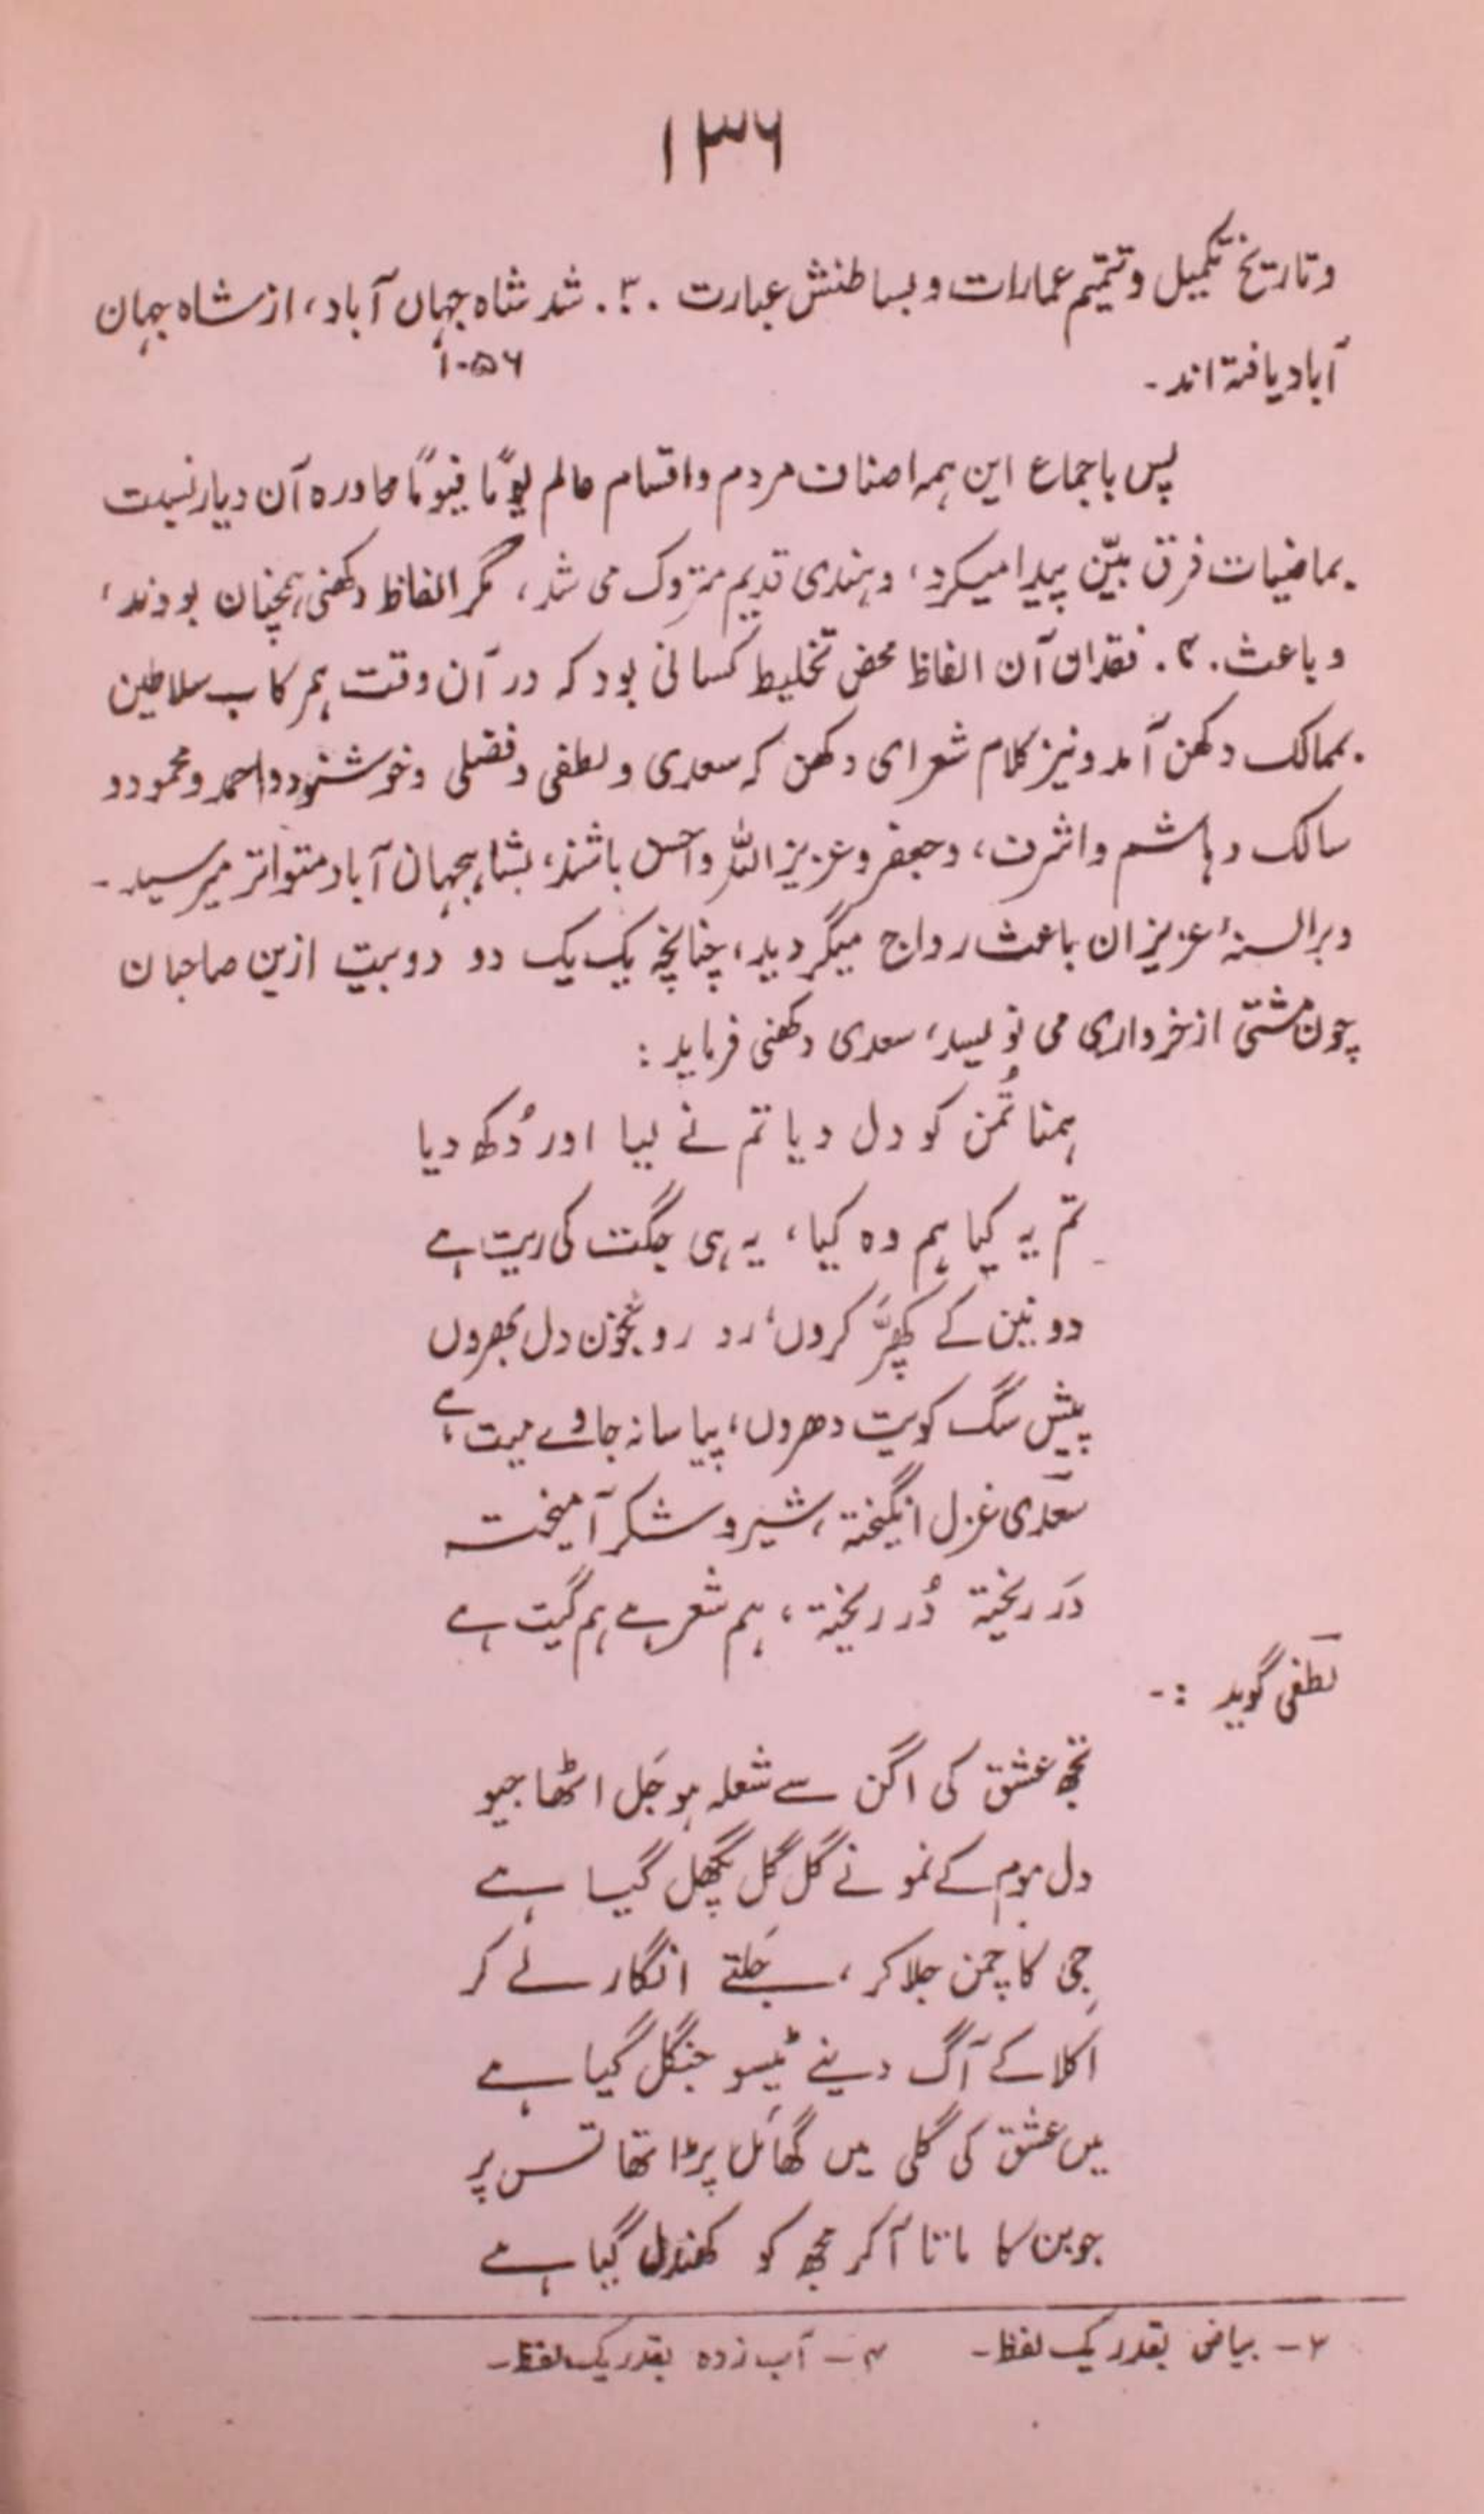 ۱۳۶
وتاریخ تکمیل وتتمیم عمارات و بساطنش عبارت ۰۳۰ شد شاہ جہاں آباد، از شاہ جہان
۱۰۵۶
آباد یافتہ اند۔
پس باجماع این ہمہ اصناف مردم واقسام عالم یوماً فیوماً محاورہ آن دیار نسبت
بماضیات فرق بیّن پیدا میکرد، وہندی قدیم متروک می شد، مگر الفاظ دکھنی ہمچنان بودند،
و باعث ۰۴۰ فقدان آن الفاظ محض تخلیط کسانی بود کہ در آن وقت ہمرکاب سلاطین
بممالک دکھن آمد ونیز کلام شعرای دکھن کہ سعدی و لطفی و فضلی و خوشنود و احمد و محمود و
سالک و ہاشم و اشرف، و جعفر و عزیز اللہ و احسن باشند، بشاہجہان آباد متواتر میرسید۔
وبر السنۂ عزیزان باعث رواج میگردید، چنانچہ یک یک دو دو بیت ازین صاحبان
چون مشتی از خرواری می نویسد، سعدی دکھنی فرماید :
ہمنا تُمن کو دل دیا تم نے لیا اور دُکھ دیا
تم یہ کیا ہم وہ کیا، یہ ہی جگت کی ریت ہے
دو نین کے کھپّر کروں، رو رو بخون دل بھروں
پیش سگ کویت دھروں، پیاسا نہ جاوے میت ہے
سعدی غزل انگیختہ، شیر و شکر آمیختہ
دَر ریختہ دُر ریختہ، ہم شعر ہے ہم گیت ہے
لطفی گوید :-
تجھ عشق کی اگن سے شعلہ ہو جَل اٹھا جیو
دل موم کے نمونے گل گل پگھل گیا ہے
جِی کا چمن جلا کر، جَلتے انگار لے کر
اکلا کے آگ دینے ٹیسو جنگل گیا ہے
میں عشق کی گلی میں گھائل پڑا تھا تس پر
جوبن کا ماتا آکر مجھ کو کھندل گیا ہے
۳- بیاض بقدر یک لفظ۔ ۴- آب زدہ بقدر یک لفظ۔